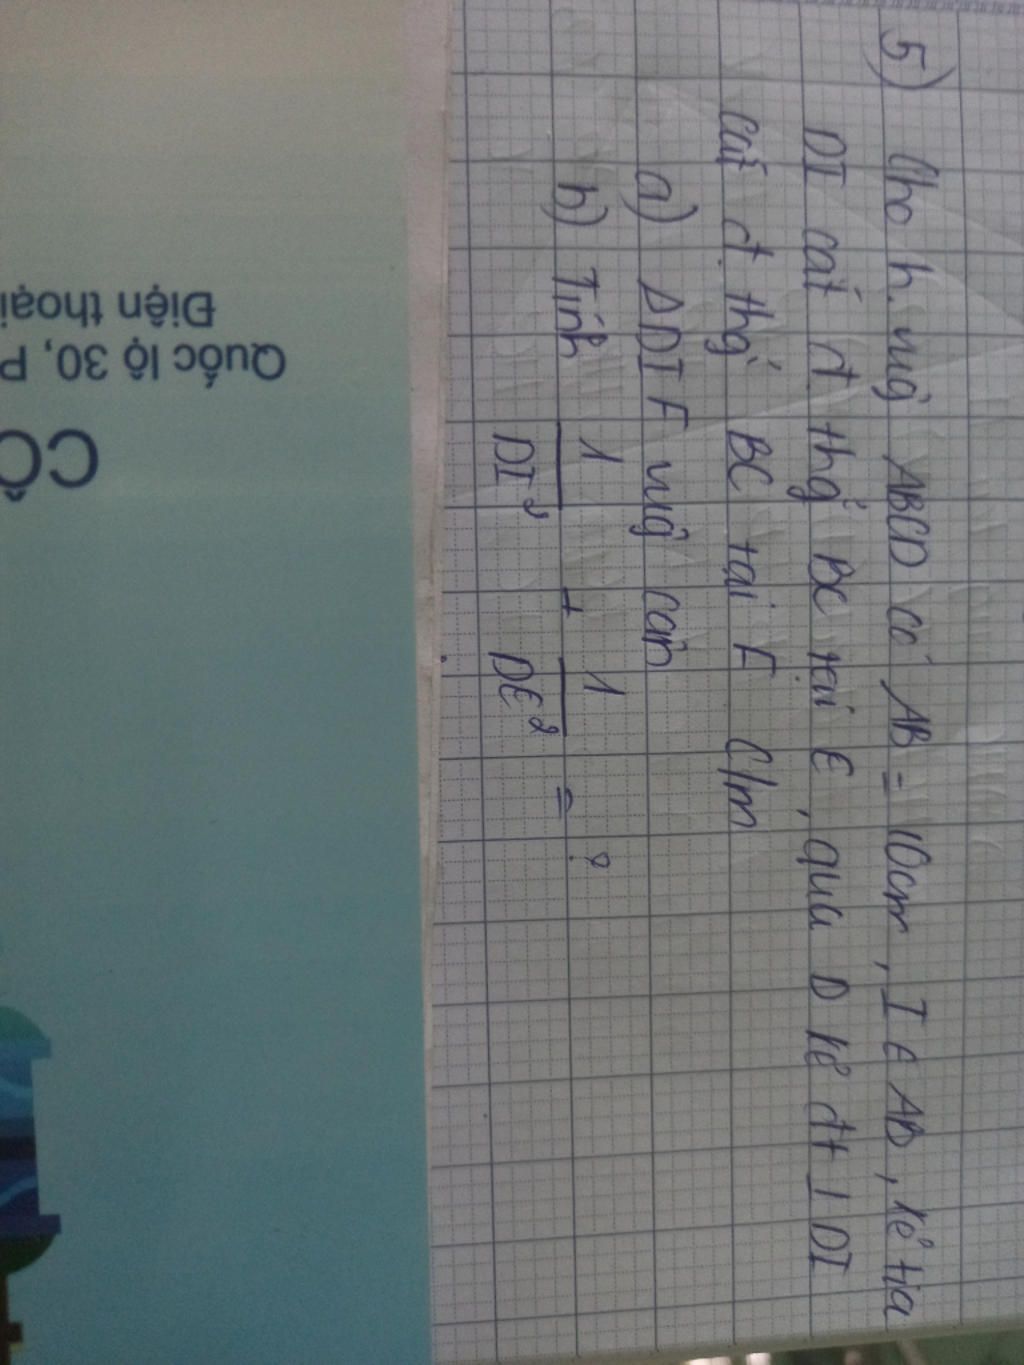 5) Cho h. vug ABCD có AB = 10cm, I ∈ AB, kẻ tia
DI cắt đ thg̉ BC tại E, qua D kẻ đt ⊥ DI
cắt đ. thg̉ BC tại F C/m
a) Δ DIF vug cân
b) Tính 1/DI² + 1/DE² = ?
CÔ
Quốc lộ 30, P
Điện thoại